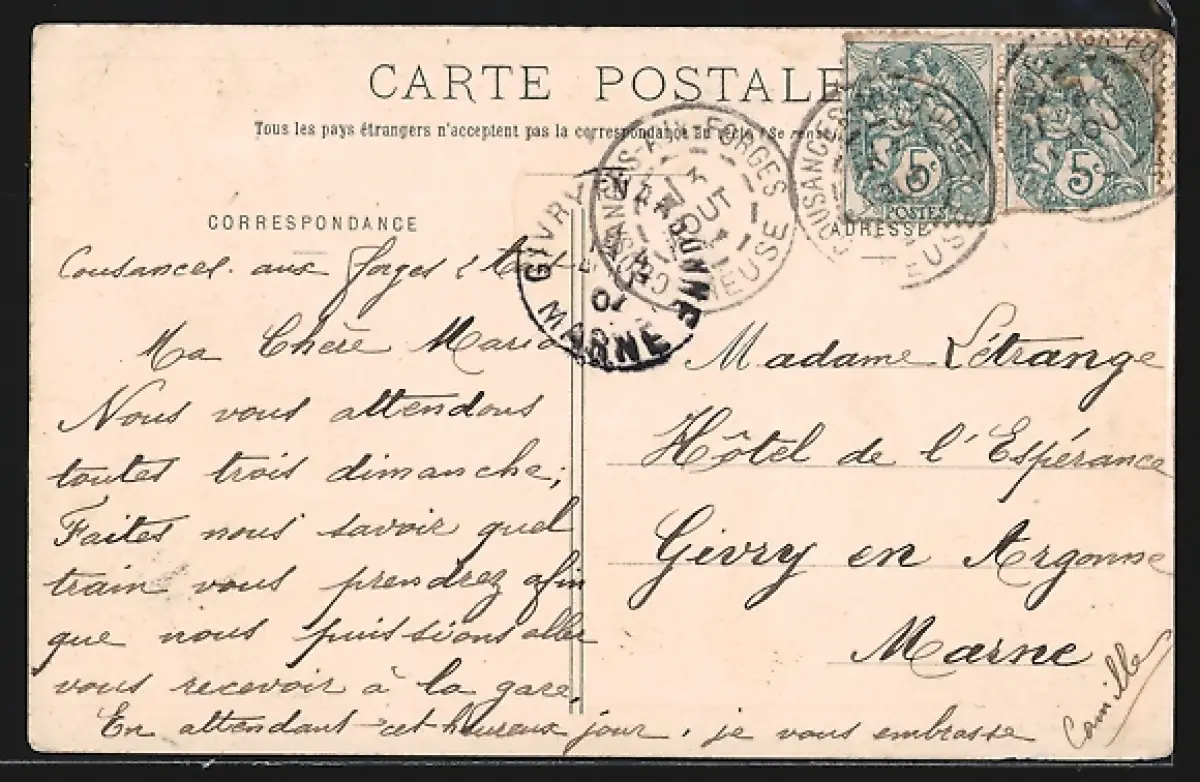 CARTE POSTALE
Tous les pays étrangers n'acceptent pas la correspondance au recto (Se rense
CORRESPONDANCE
ADRESSE
5c
POSTES
5c
COUSANCES-AUX-FORGES
3
AOUT
MEUSE
GIVRY EN ARGONNE
MARNE
Cousances aux forges
Ma Chère Maria
Nous vous attendons
toutes trois dimanche;
Faites nous savoir quel
train vous prendrez afin
que nous puissions aller
vous recevoir à la gare.
En attendant cet heureux jour, je vous embrasse
Camille
Madame Létrange
Hôtel de l'Espérance
Givry en Argonne
Marne